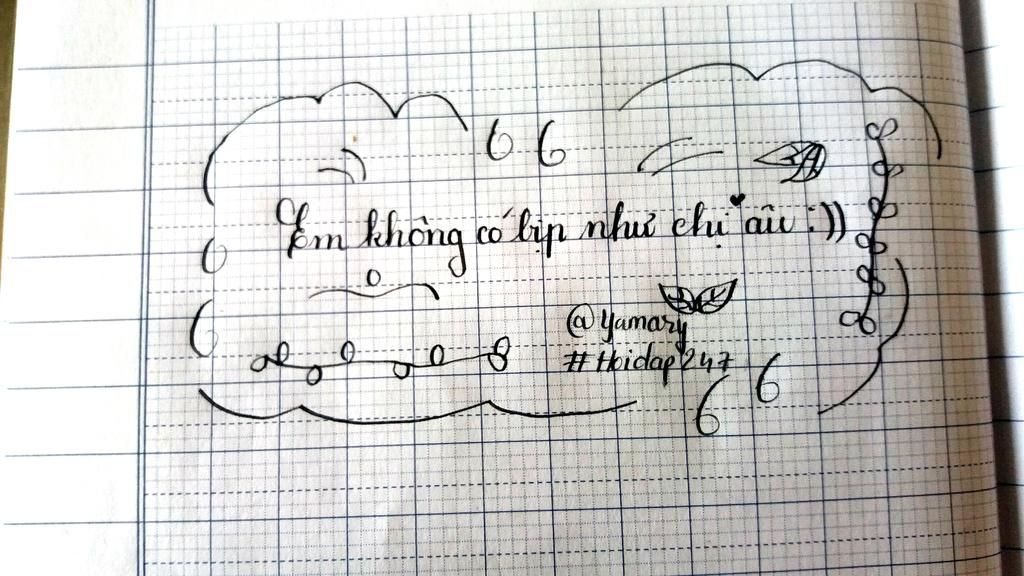 6 6
Em không có bịp như chị âu :))
6
6
@Yamary
#Hoidap247
6
6